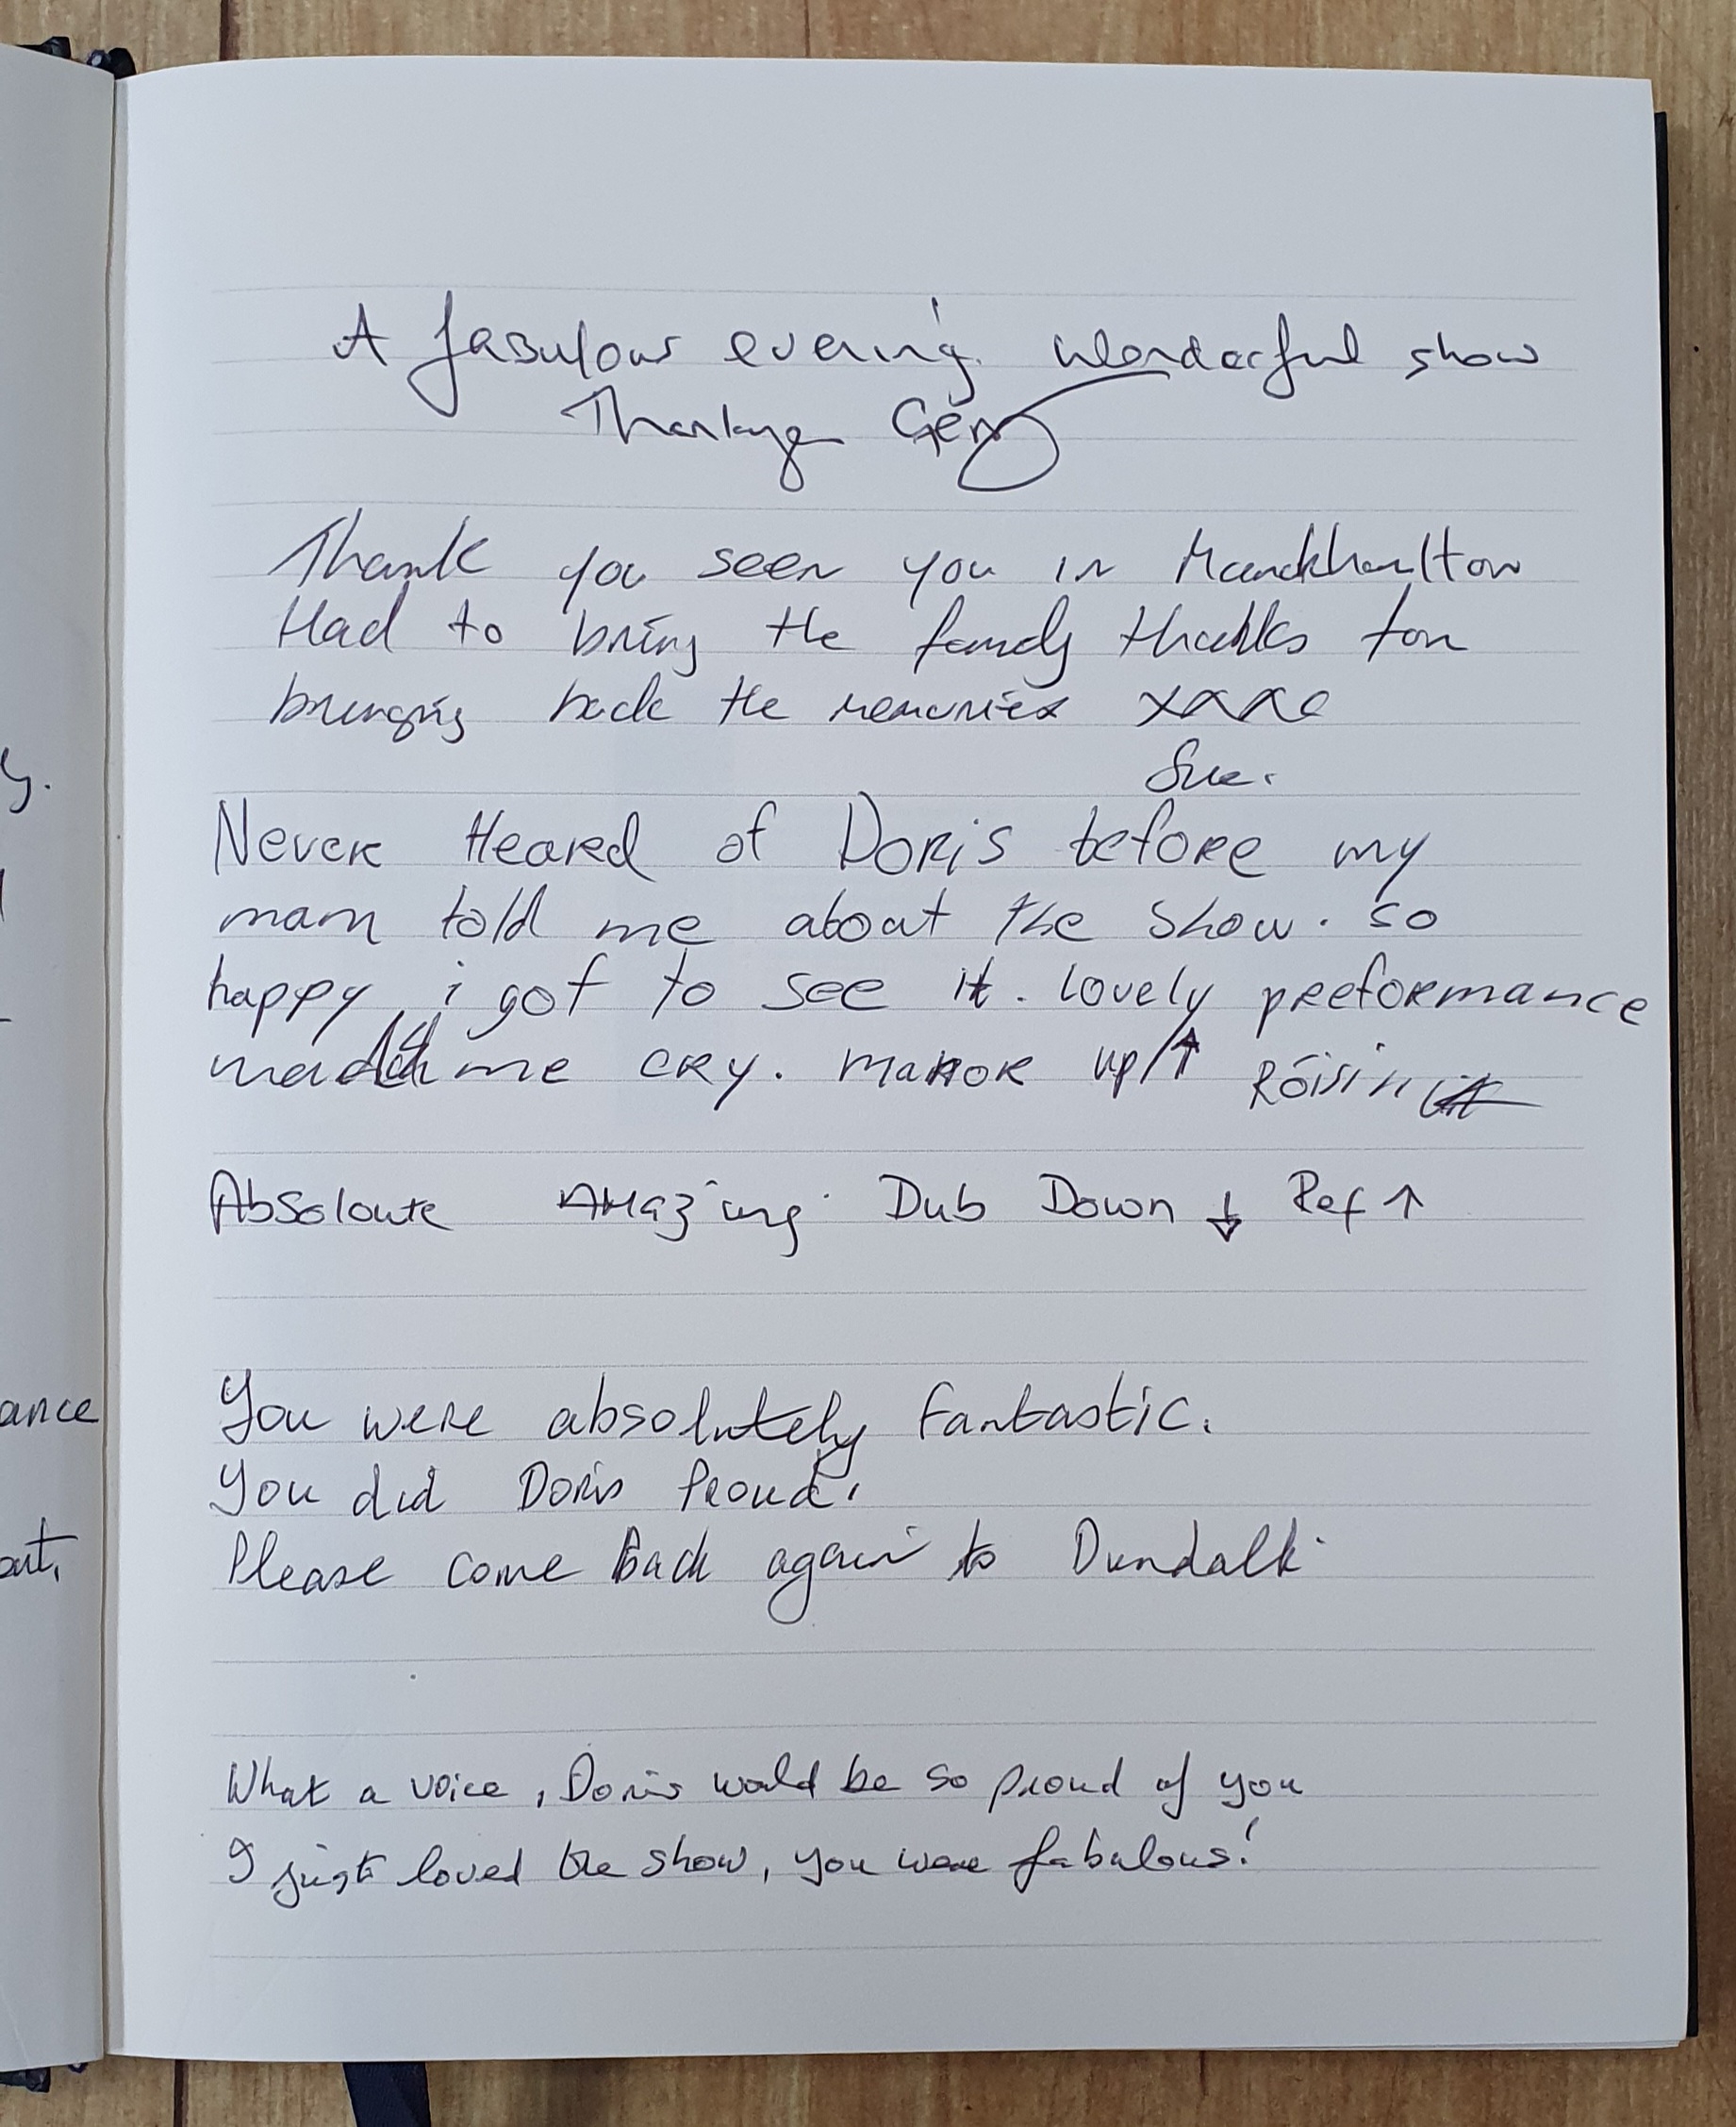 A fabulous evening. Wonderful show
Thankyou Gerry
Thank you seen you in
Had to bring the family thanks for
bringing back the memories xxxx
Sue.
Never Heared of Doris before my
mam told me about the show. so
happy i got to see it. lovely preformance
made me cry. Manor up ↑ Róisín
Absoloute Amazing. Dub Down ↓ Ref ↑
You were absolutely fantastic.
You did Doris Proud.
Please come back again to Dundalk.
What a voice, Doris would be so proud of you
I just loved the show, you were fabulous!
y.
ance
out,